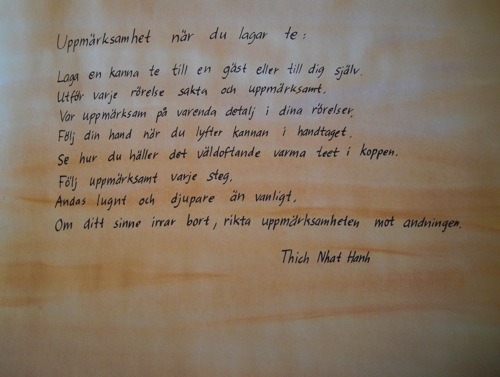 Uppmärksamhet när du lagar te:
Laga en kanna te till en gäst eller till dig själv.
Utför varje rörelse sakta och uppmärksamt.
Var uppmärksam på varenda detalj i dina rörelser.
Följ din hand när du lyfter kannan i handtaget.
Se hur du häller det väldoftande varma teet i koppen.
Följ uppmärksamt varje steg.
Andas lugnt och djupare än vanligt.
Om ditt sinne irrar bort, rikta uppmärksamheten mot andningen.
Thich Nhat Hanh